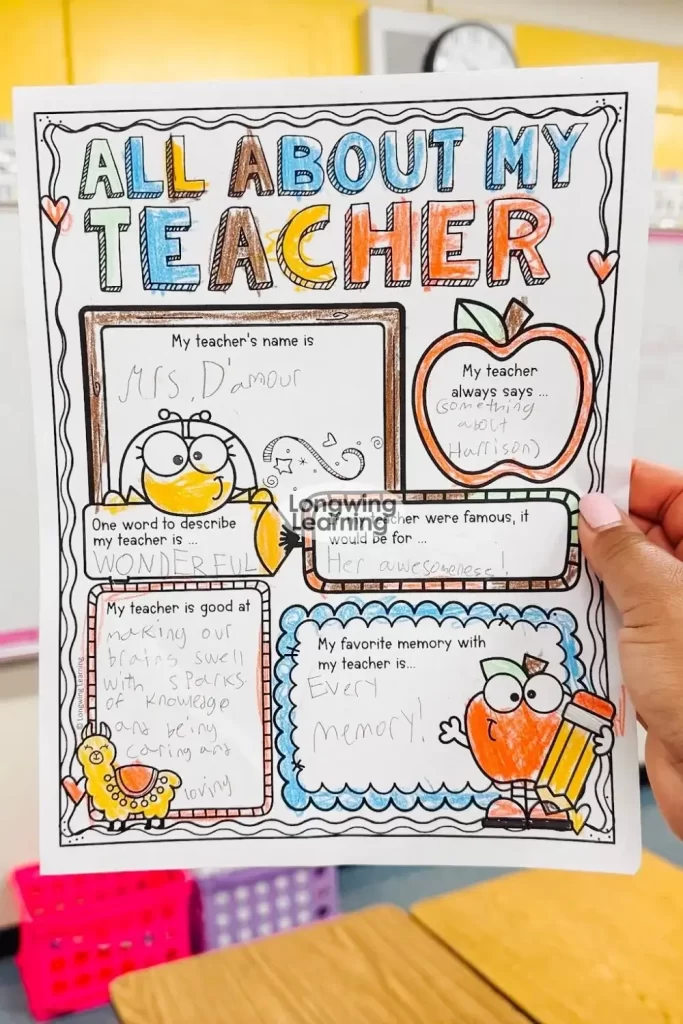 ALL ABOUT MY
TEACHER
My teacher's name is
Mrs. D'amour
My teacher
always says ...
(something
about
Harrison)
One word to describe
my teacher is ...
WONDERFUL
Longwing
Learning
cher were famous, it
would be for ...
Her awesomeness!
My teacher is good at
making our
brains swell
with sparks
of knowledge
and being
caring and
loving
My favorite memory with
my teacher is...
Every
memory!
© Longwing Learning